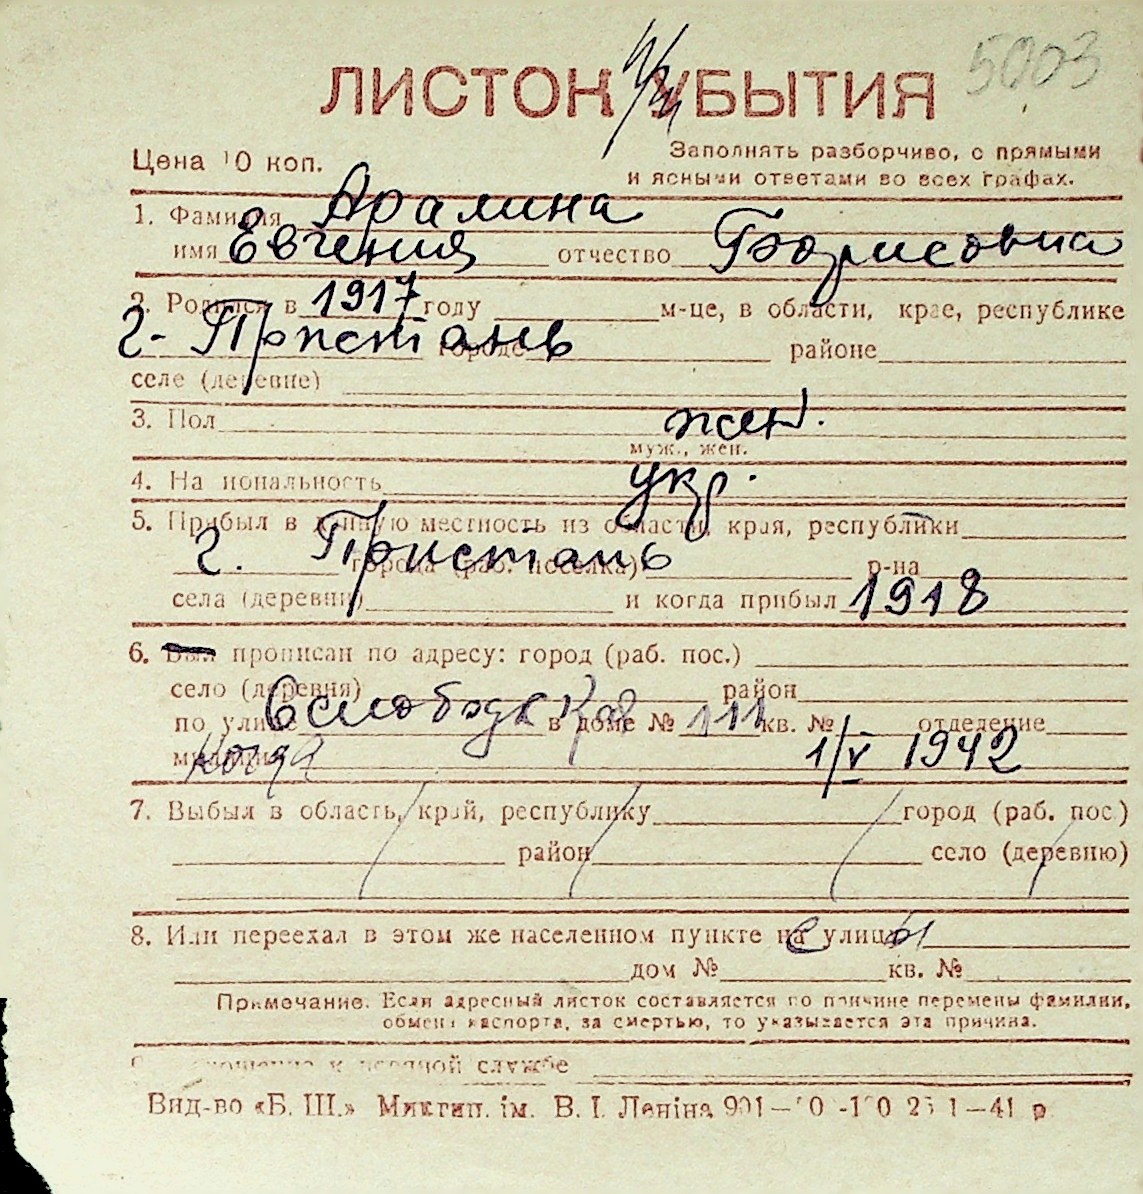 5003
ЛИСТОК УБЫТИЯ
Цена 10 коп.
Заполнять разборчиво, с прямыми
и ясными ответами во всех графах.
1. Фамилия Арамина
имя Евгения отчество Борисовна
2. Родился в 1917 году м-це, в области, крае, республике
г. Пристань городе районе
селе (деревне)
3. Пол жен.
муж., жен.
4. Национальность укр.
5. Прибыл в данную местность из области, края, республики
г. Пристань города (раб. поселка) р-на
села (деревни) и когда прибыл 1918
6. Был прописан по адресу: город (раб. пос.)
село (деревня) район
по улице Слободка в доме № 111 кв. № отделение
милиции когда 1/V 1942
7. Выбыл в область, край, республику город (раб. пос.)
район село (деревню)
8. Или переехал в этом же населенном пункте на улицу
дом № кв. №
Примечание. Если адресный листок составляется по причине перемены фамилии,
обмена паспорта, за смертью, то указывается эта причина.
к военной службе
Вид-во «Б. Ш.» Микгип. ім. В. І. Леніна